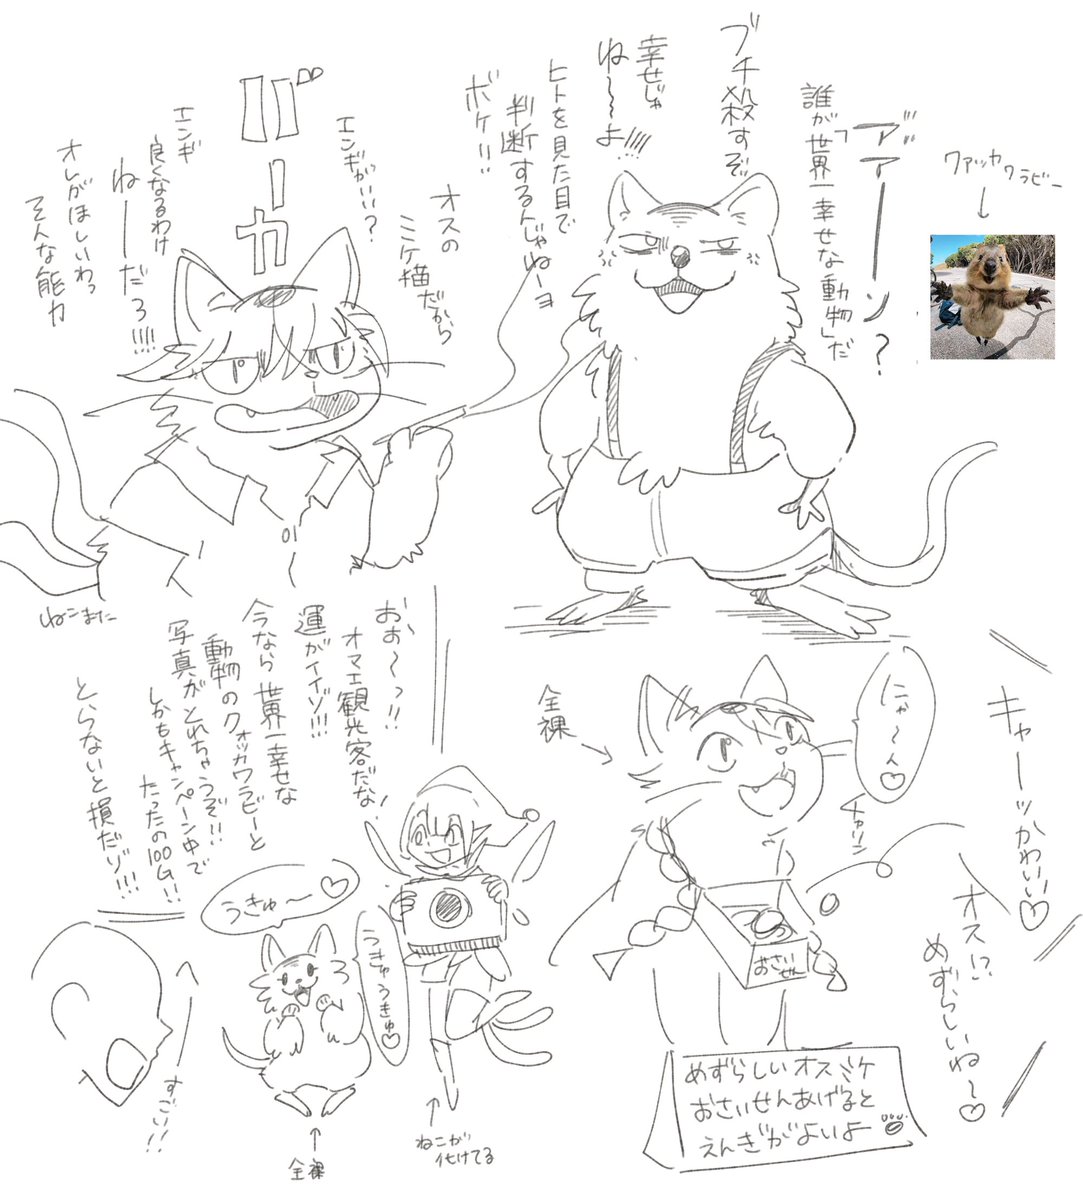 クァッカワラビー
アァーン?
誰が「世界一幸せな動物」だ
ブチ殺すぞ
幸せじゃ
ね〜〜よ!!!!
ヒトを見た目で
判断するんじゃねーヨ
ボケ!!
オスの
ミケ猫だから
エンギがいい?
バーカ
エンギ
良くなるわけ
ねーーだろ!!!!
オレがほしいわっ
そんな能力
ねこまた
おぉ〜っ!!
オマエ観光客だな!
運がイイゾ!!!
今なら世界一幸せな
動物のクォッカワラビーと
写真がとれちゃうぞ!!
しかもキャンペーン中で
たったの100G!!
とらないと損だゾ!!!
うきゅ〜♡
うきゅうきゅ♡
すごい!!
全裸
ねこが
化けてる
キャーッかわいい♡
オス!?
めずらしいね〜♡
にゃ〜ん♡
全裸
チャリン
おさいせん
めずらしいオスミケ
おさいせんあげると
えんぎがよいよー